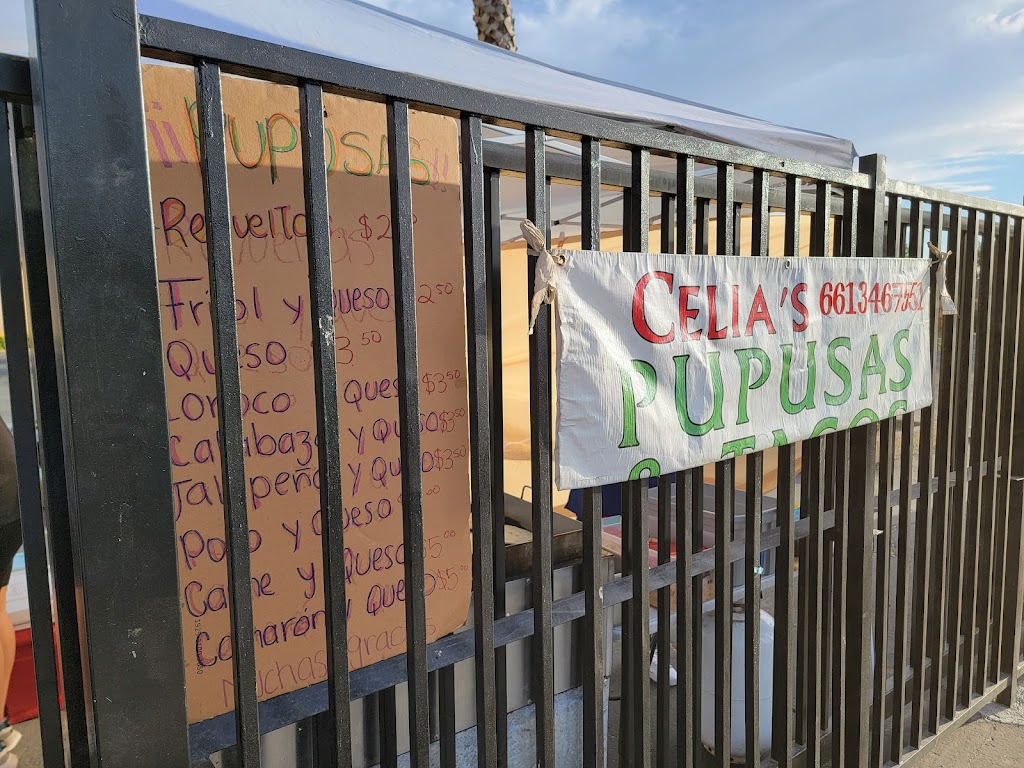 ¡¡Pupusas!!
Revueltas $2
Frijol y Queso 2.50
Queso 3.50
Loroco Queso $3.50
Calabaza y Queso $3.50
Jalapeño y Queso $3.50
Pollo y Queso
Carne y Queso $5.00
Camarón y Queso $5.00
Muchas gracias
CELIA'S 661346
PUPUSAS
& TACOS